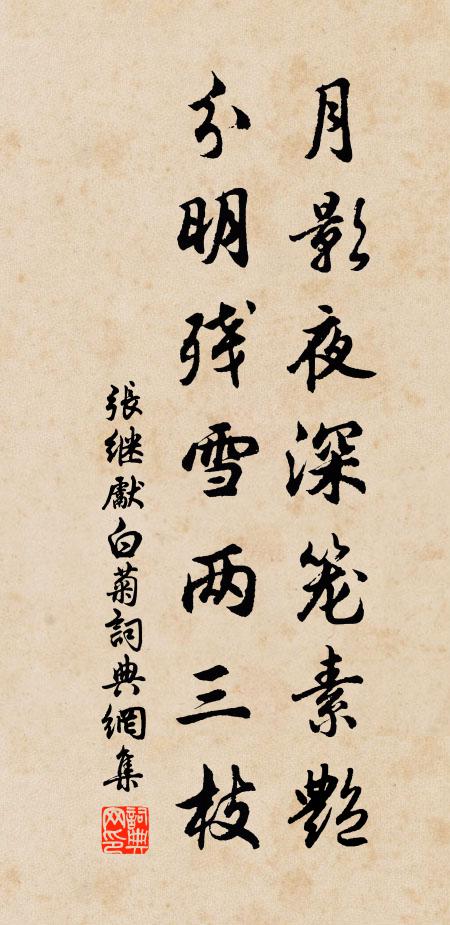 月影夜深笼素艳
分明残雪两三枝
張继獻白菊詞典網集
詞典网印